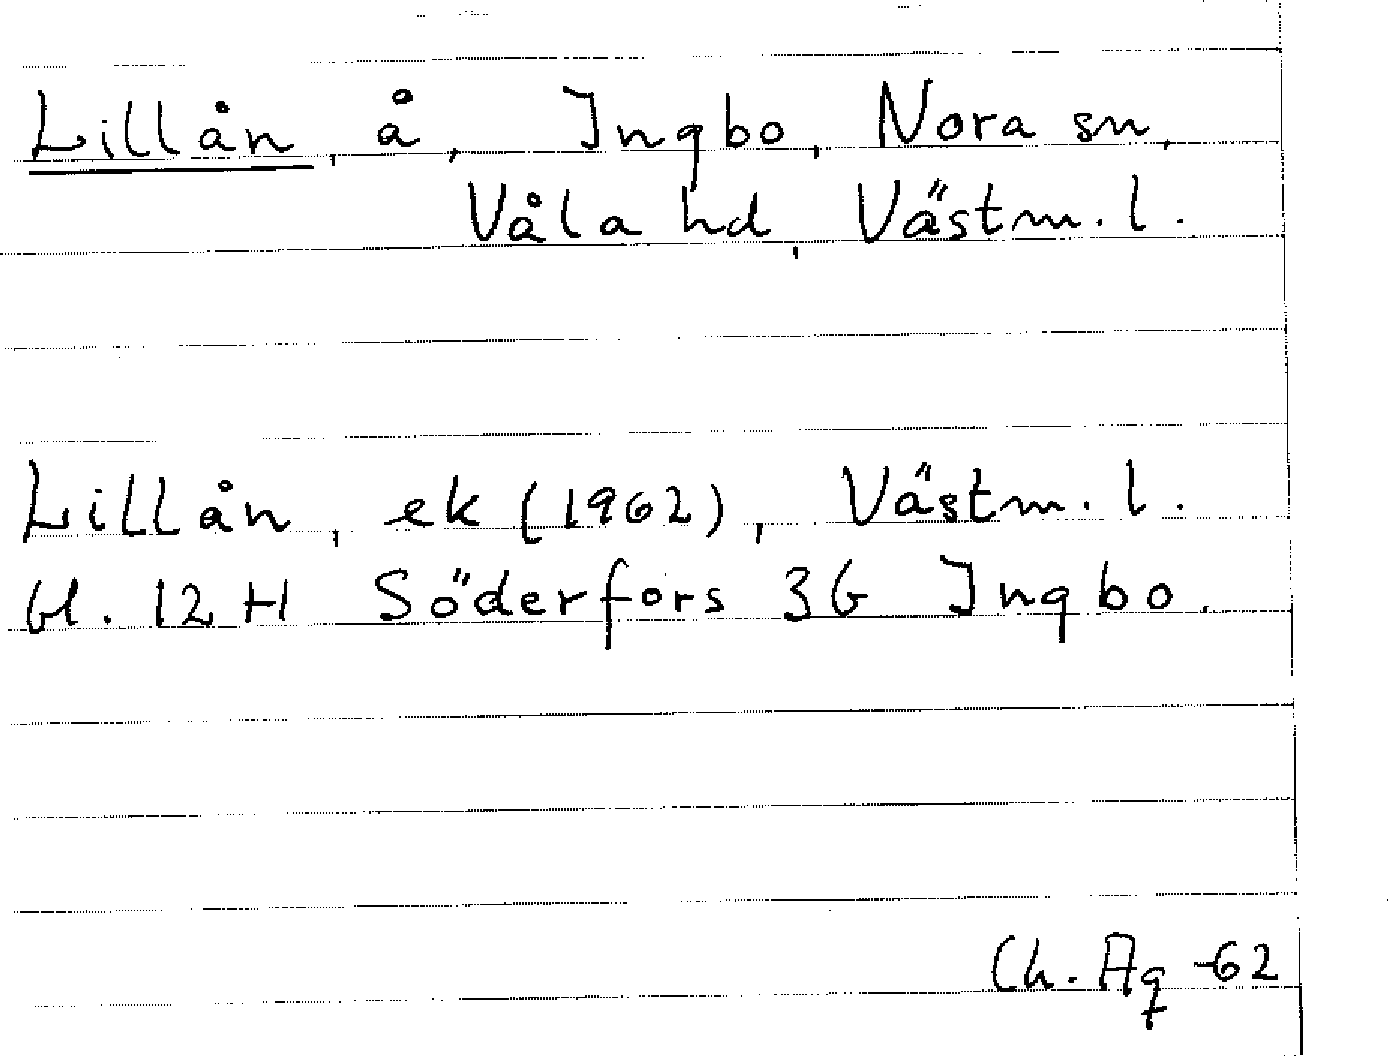 Lillån, å, Ingbo, Nora sn,
Våla hd, Västm. l.
Lillån, ek (1962), Västm. l.
bl. 12 H Söderfors 3G Ingbo.
Ch. Ag -62